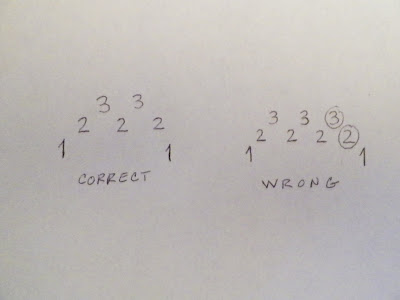 3 3
2 2 2
1 1
CORRECT
3 3 3
2 2 2 2
1 1
WRONG